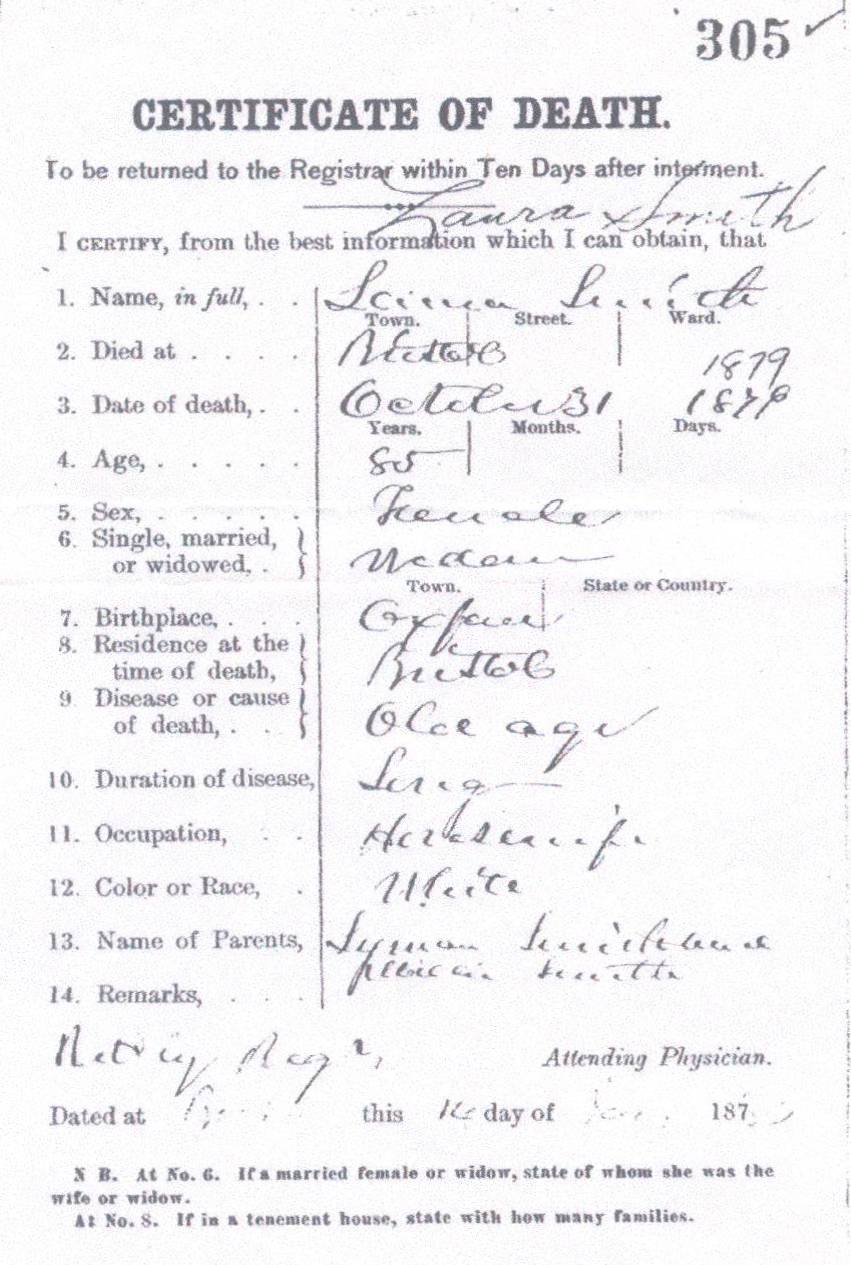 305
CERTIFICATE OF DEATH.
To be returned to the Registrar within Ten Days after interment.
Laura Smith
I CERTIFY, from the best information which I can obtain, that
1. Name, in full, . . Smith
Town. Street. Ward.
2. Died at . . . . Bristol 1879
3. Date of death, . . October 31 1879
Years. Months. Days.
4. Age, . . . . . 85
5. Sex, . . . . . Female
6. Single, married,
or widowed, . }
Town. State or Country.
7. Birthplace, . . . Oxford
8. Residence at the
time of death, } Bristol
9 Disease or cause
of death, . . } Old age
10. Duration of disease, Long
11. Occupation, . . Housewife
12. Color or Race, . White
13. Name of Parents, Lyman Smith and
Smith
14. Remarks, . . .
Attending Physician.
Dated at this day of 187
N B. At No. 6. If a married female or widow, state of whom she was the
wife or widow.
At No. 8. If in a tenement house, state with how many families.